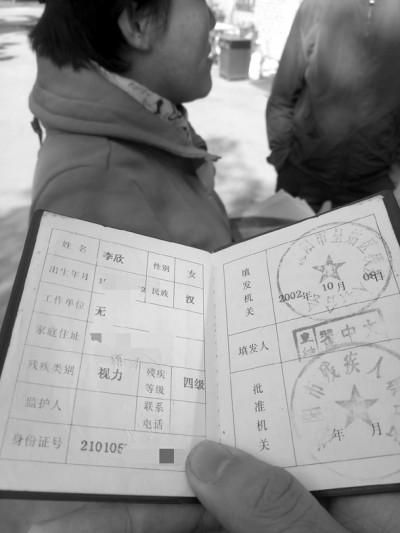 姓名 李欣 性别 女
出生年月 2 民族 汉
工作单位 无
家庭住址
残疾类别 视力 残疾等级 四级
监护人 联系电话
身份证号 210105
填发机关 2002年 10月 08日
填发人
批准机关 年 月